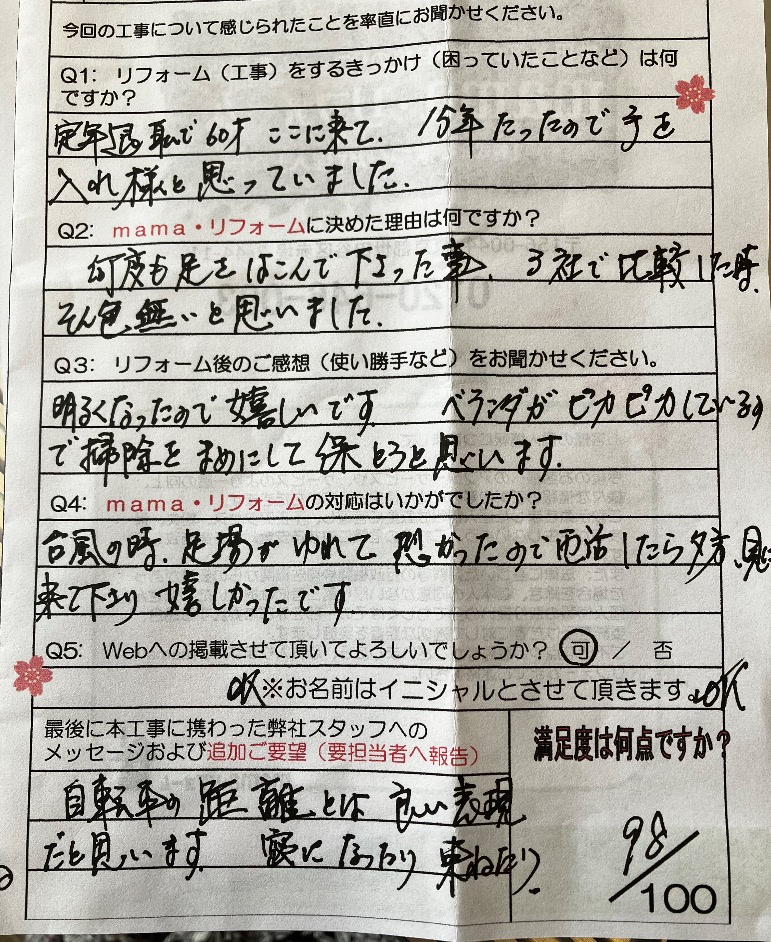 今回の工事について感じられたことを率直にお聞かせください。
Q1: リフォーム（工事）をするきっかけ（困っていたことなど）は何
ですか？
定年退職で60才 ここに来て、 15年たったので手を
入れ様と思っていました。
Q2: mama・リフォームに決めた理由は何ですか？
何度も足をはこんで下さった事、3社で比較した時、
そん色無いと思いました。
Q3: リフォーム後のご感想（使い勝手など）をお聞かせください。
明るくなったので嬉しいです。 ベランダがピカピカしているの
で掃除をまめにして保とうと思います。
Q4: mama・リフォームの対応はいかがでしたか？
台風の時、足場がゆれて恐かったので電話したら夕方、見に
来て下さり嬉しかったです
Q5: Webへの掲載させて頂いてよろしいでしょうか？ 可 ／ 否
OK ※お名前はイニシャルとさせて頂きます。 OK
最後に本工事に携わった弊社スタッフへの
メッセージおよび追加ご要望（要担当者へ報告）
満足度は何点ですか？
自転車の距離とは良い表現
だと思います。 実になったり
98／100